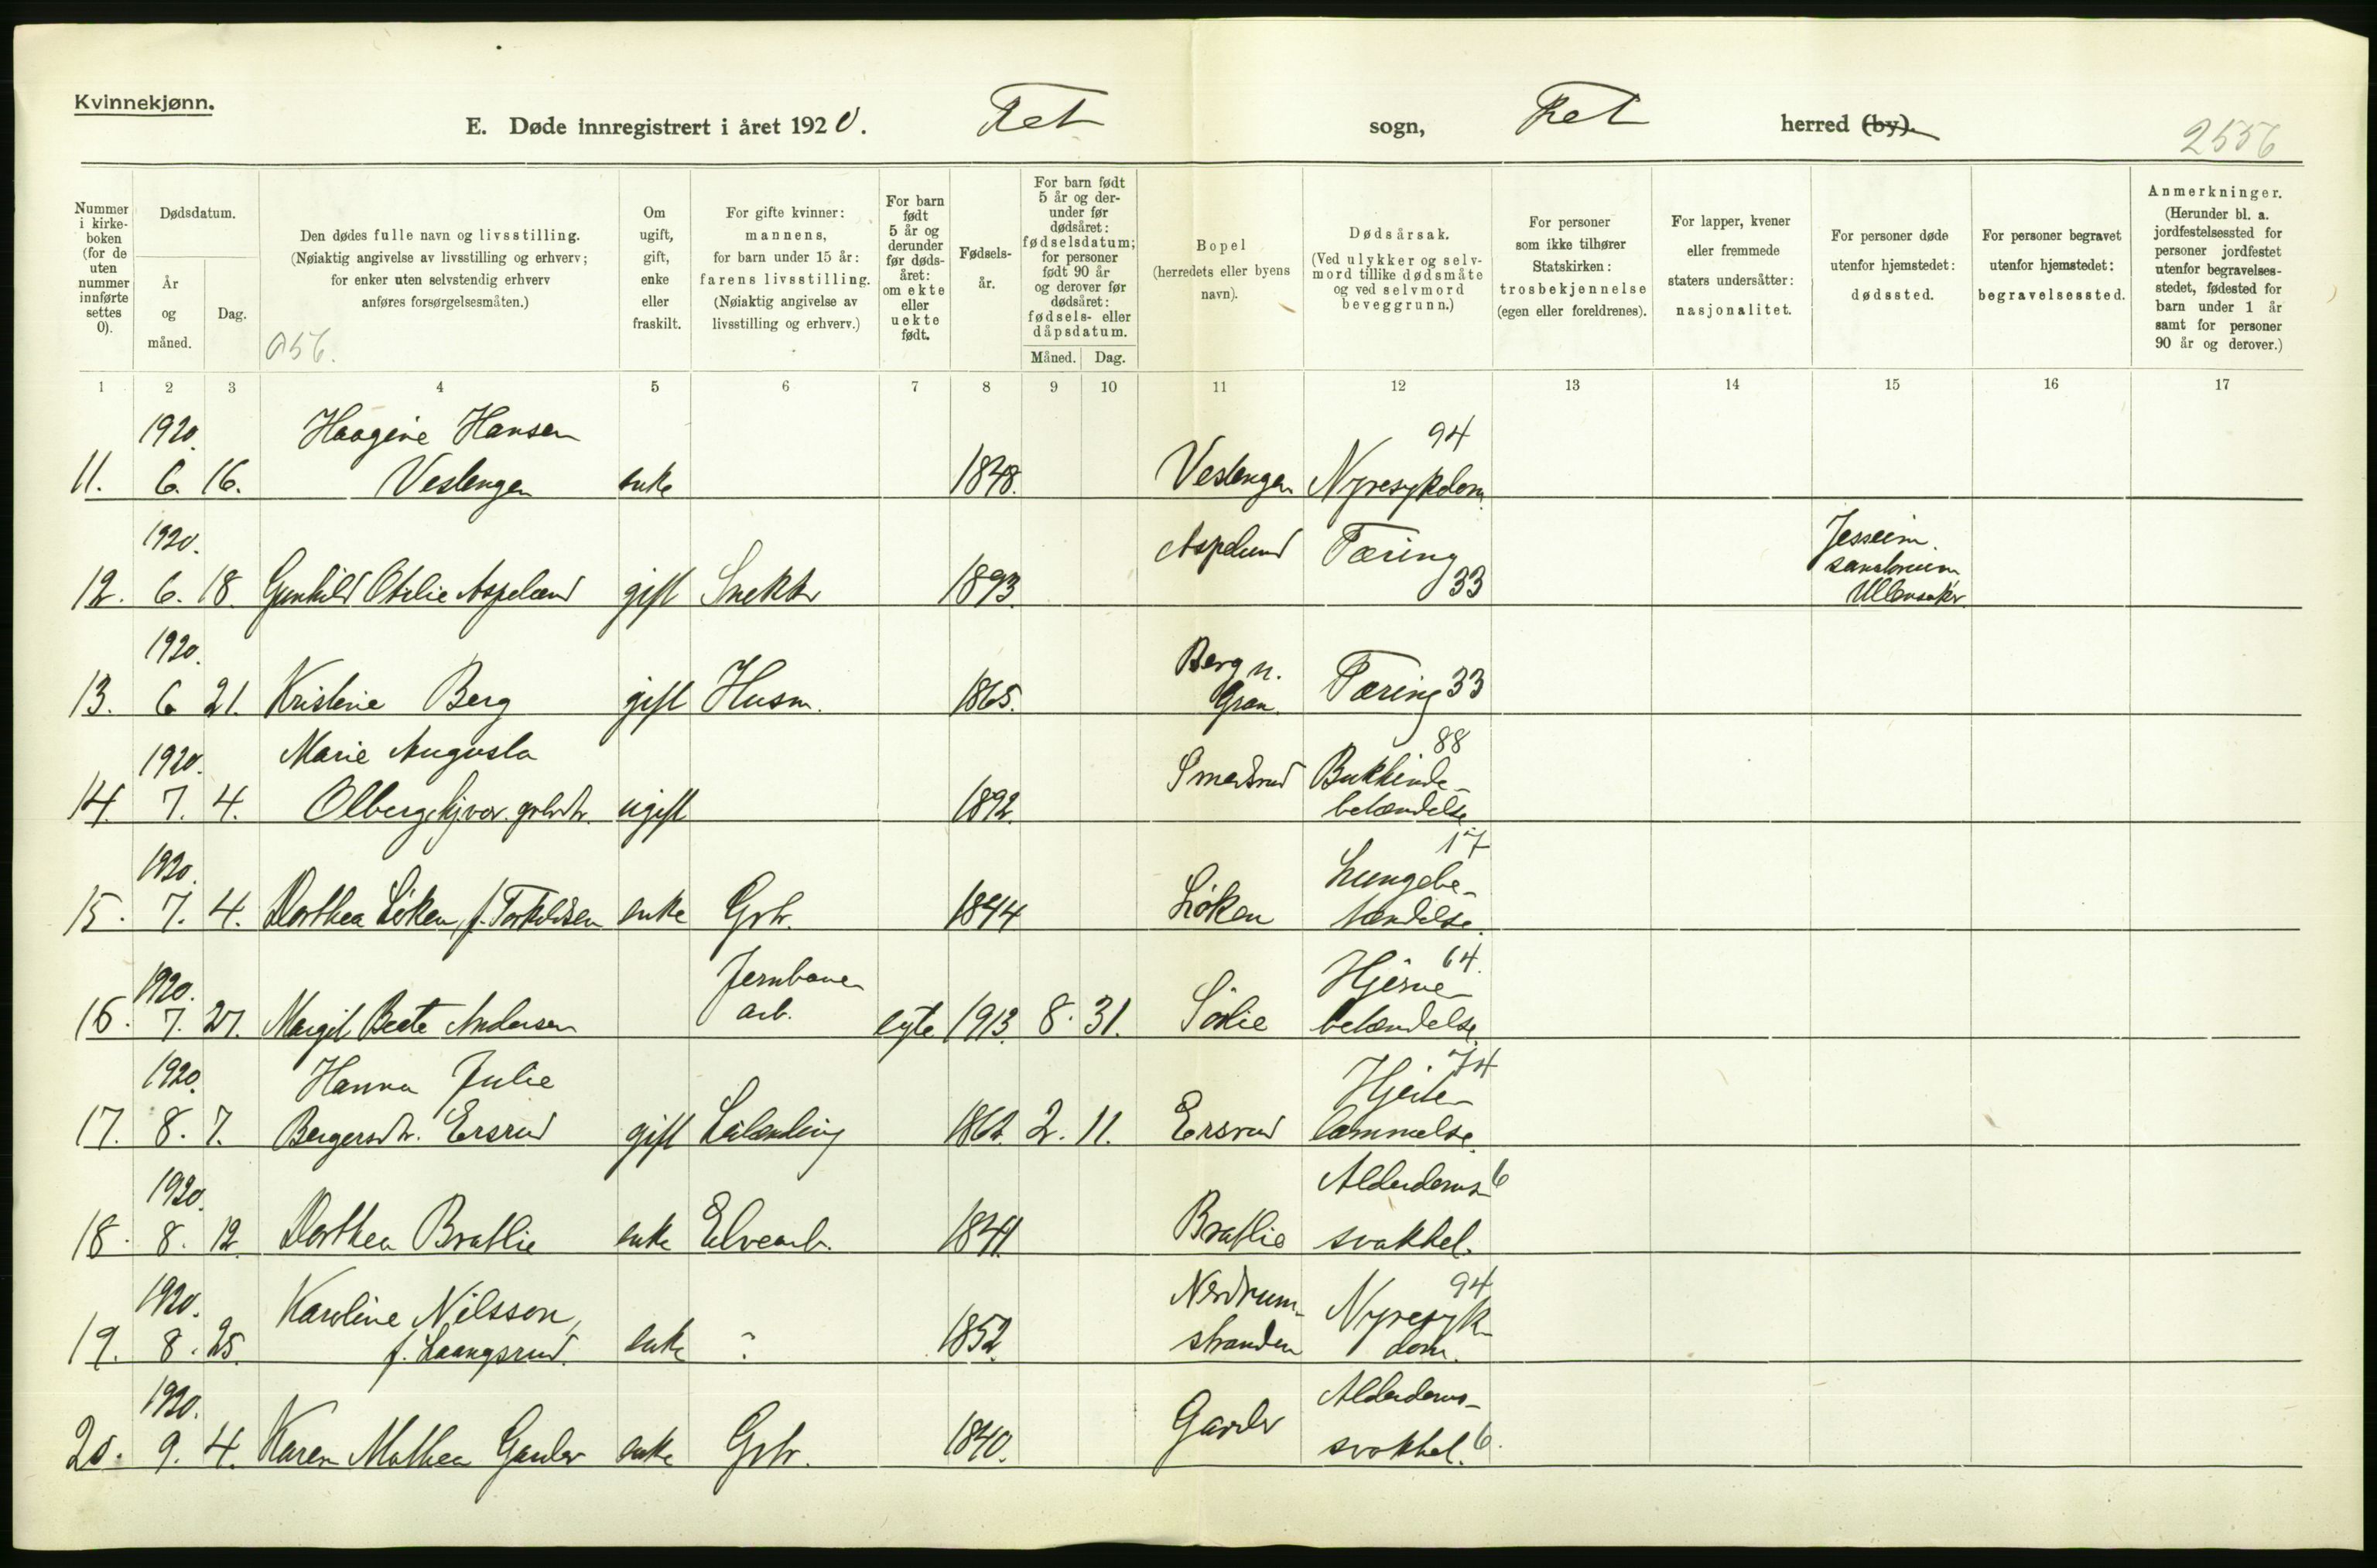 Kvinnekjønn.
E. Døde innregistrert i året 1920. Fet sogn, Fet herred (by).
2556
Nummer i kirkeboken (for de uten nummer innførte settes 0).
Dødsdatum.
År og måned.
Dag.
Den dødes fulle navn og livsstilling.
(Nøiaktig angivelse av livsstilling og erhverv;
for enker uten selvstendig erhverv
anføres forsørgelsesmåten.)
056.
Om ugift, gift, enke eller fraskilt.
For gifte kvinner:
mannens,
for barn under 15 år:
farens livsstilling.
(Nøiaktig angivelse av
livsstilling og erhverv.)
For barn født 5 år og derunder før dødsåret: om ekte eller uekte født.
Fødselsår.
For barn født 5 år og derunder før dødsåret: fødselsdatum; for personer født 90 år og derover før dødsåret: fødsels- eller dåpsdatum.
Måned. Dag.
Bopel
(herredets eller byens
navn).
Dødsårsak.
(Ved ulykker og selvmord tillike dødsmåte og ved selvmord beveggrunn.)
For personer
som ikke tilhører
Statskirken:
trosbekjennelse
(egen eller foreldrenes).
For lapper, kvener
eller fremmede
staters undersåtter:
nasjonalitet.
For personer døde
utenfor hjemstedet:
dødssted.
For personer begravet
utenfor hjemstedet:
begravelsessted.
Anmerkninger.
(Herunder bl. a.
jordfestelsessted for
personer jordfestet
utenfor begravelses-
stedet, fødested for
barn under 1 år
samt for personer
90 år og derover.)
1 2 3 4 5 6 7 8 9 10 11 12 13 14 15 16 17
1920. Haagine Hansen 94
11. 6. 16. Veslengen enke 1848. Veslengen Nyresykdom
1920. Aspelund Tæring Jesseim sanatorium
12. 6. 18. Gunhild Otilie Aspelund gift Snekker 1893. 33 Ullensaker
1920. Berg n.
13. 6 21. Kristine Berg gift Husm. 1865. Gran. Tæring 33
1920. Marie Augusta Smedsrud Bukhinde- 88
14. 7. 4. Olberg, ugift 1892. betændelse
1920. Lungebe- 17
15. 7. 4. Dorthea Løken, f. Torkildsen enke Gbr. 1844 Løken tændelse.
1920. Jernbane- Hjerne- 64.
16. 7. 27. Margit Beate Andersen arb. egte 1913. 8. 31. Sørlie betændelse.
1920. Hanna Julie Hjerte- 74
17. 8. 7. Bergersdtr. Ersrud gift Leilending 2. 11. Ersrud lammelse.
1920. Alderdoms- 6
18. 8. 12. Dorthea Bratlie enke Elvearb. 1841. Bratlie svakhet.
1920. Karoline Nilsson, Nerdrum- Nyresyk- 94
19. 8. 25. f. Laangsrud. enke ? 1852. stranden dom.
1920. Alderdoms-
20. 9. 4. Karen Mathea Garder enke Gbr. 1840. Garder svakhet. 6.